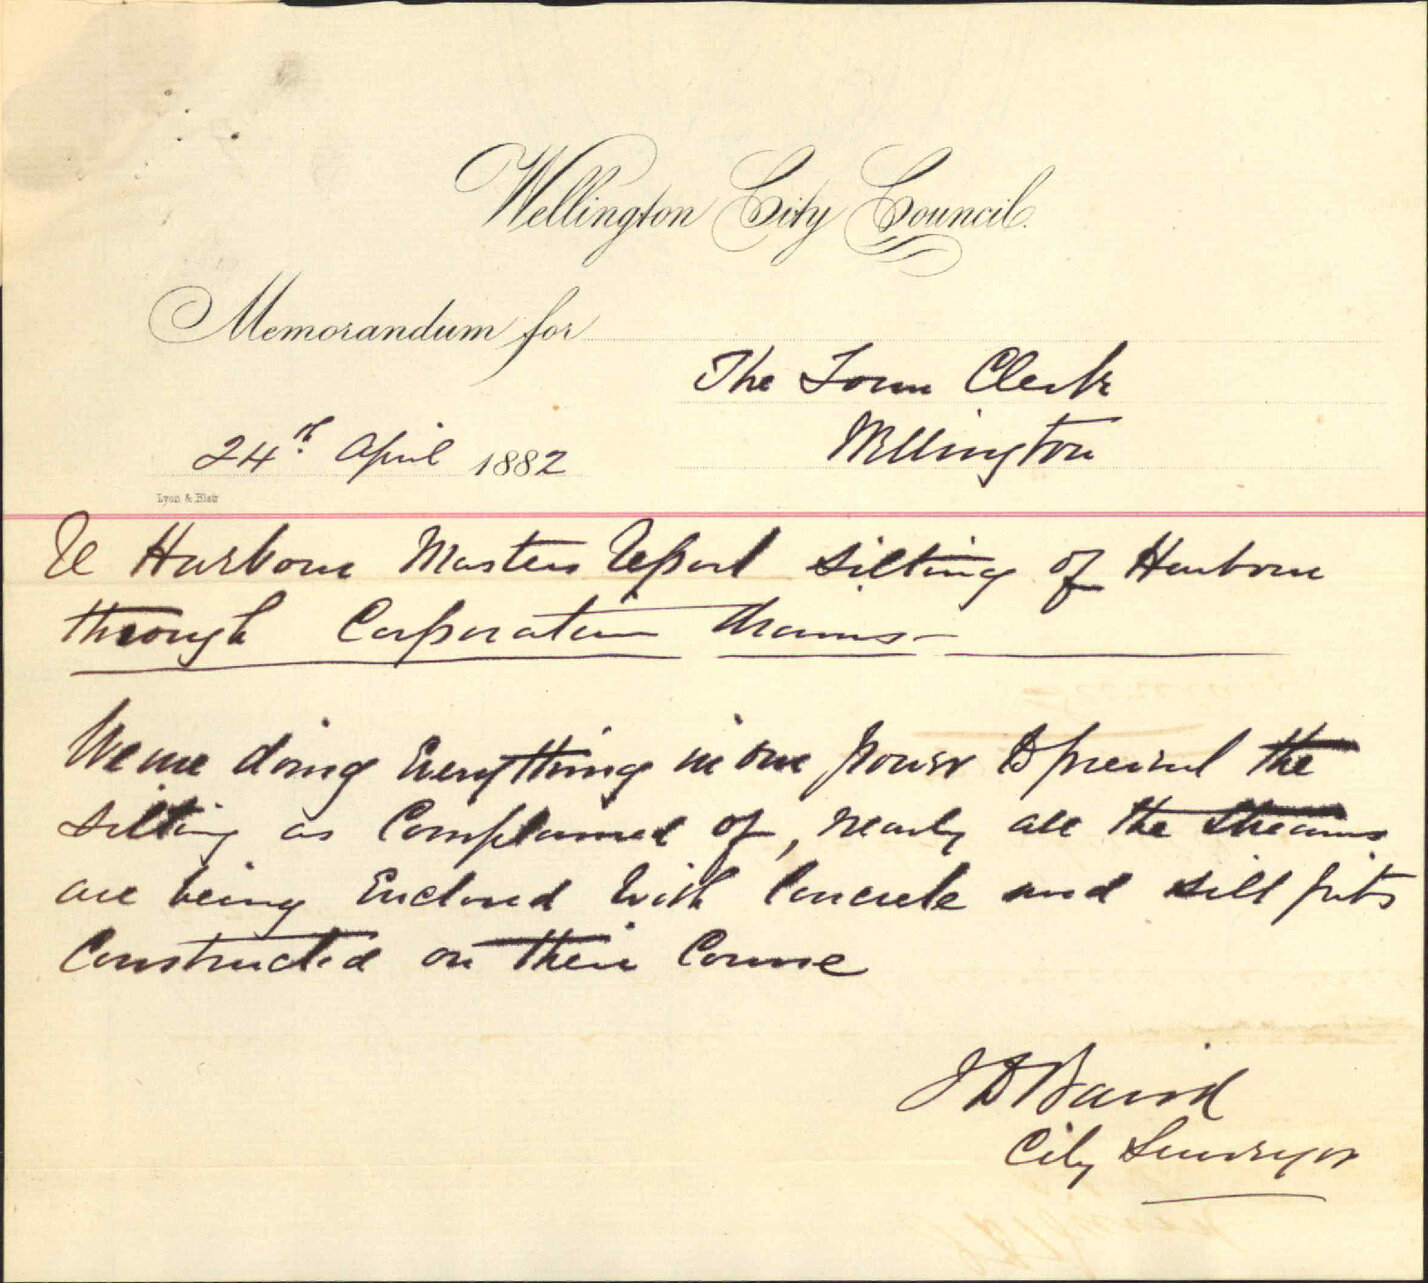 Wellington City Council.
Memorandum for
The Town Clerk
Wellington
24th April 1882
Lyon & Blair
Re Harbour Masters Report silting of Harbour
through Corporation drains—
We are doing Everything in our power to prevent the
silting as Complained of, nearly all the streams
are being Enclosed with Concrete and silt pits
Constructed on their Course
J D Baird
City Surveyor